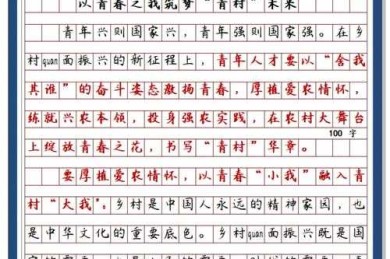 以青春之我筑梦“青村”未来
青年兴则国家兴，青年强则国家强。在乡
村quan面振兴的新征程上，青年人才要以“舍我
其谁”的奋斗姿态激扬青春，厚植爱农情怀，
练就兴农本领，投身强农实践，在农村大舞台
100 字
上绽放青春之花，书写“青村”华章。
要厚植爱农情怀，以青春“小我”融入青
村“大我”。乡村是中国人永远的精神家园，也
是中华文化的重要底色。乡村quan面振兴既是国